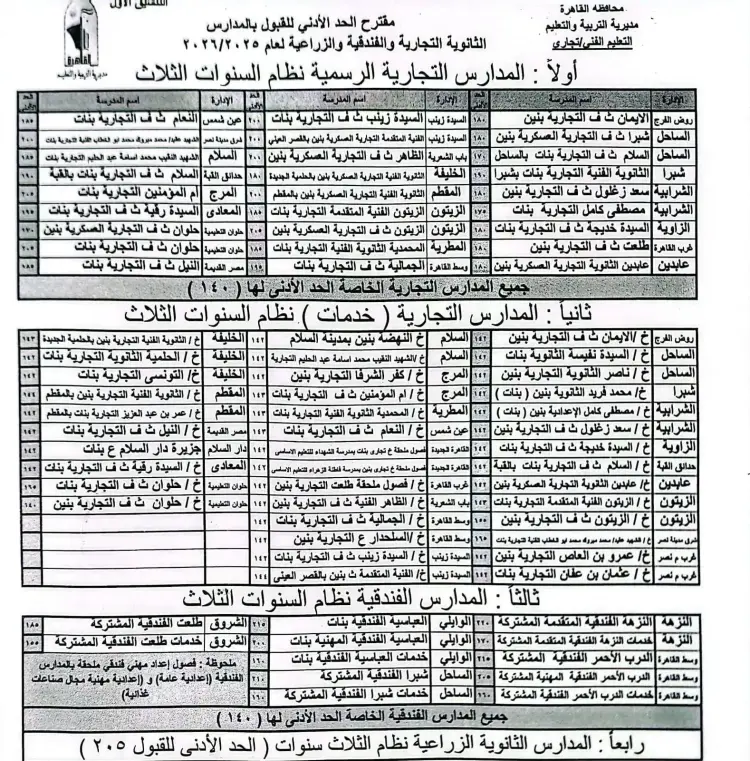 محافظة القاهرة
مديرية التربية والتعليم
التعليم الفني/تجاري
التنسيق الأول
القاهرة
مديرية التربية والتعليم
مقترح الحد الأدني للقبول بالمدارس
الثانوية التجارية والفندقية والزراعية لعام ٢٠٢٦/٢٠٢٥
أولاً : المدارس التجارية الرسمية نظام السنوات الثلاث
الإدارة اسم المدرسة الحد الأدنى الإدارة اسم المدرسة الحد الأدنى الإدارة اسم المدرسة الحد الأدنى
روض الفرج الايمان ث ف التجارية بنين ١٨٠ السيدة زينب السيدة زينب ث ف التجارية بنات ٢٠٠ عين شمس النعام ث ف التجارية بنات ١٨٥
الساحل شبرا ث ف التجارية العسكرية بنين ١٨٠ السيدة زينب الفنية المتقدمة التجارية العسكرية بنين بالقصر العينى ٢٠٠ شرق مدينة نصر الشهيد عقيد/ محمد مبروك محمد ابو الخطاب الفنية التجارية بنات ٢٠٠
الساحل السلام ث ف التجارية بنات بالساحل ١٧٠ باب الشعرية الظاهر ث ف التجارية العسكرية بنين ٢٠٠ السلام الشهيد النقيب محمد اسامة عبد الحليم التجارية بنات ١٨٥
شبرا الثانوية الفنية التجارية بنات بشبرا ١٩٠ الخليفة الثانوية الفنية التجارية العسكرية بنين بالحلمية الجديدة ١٨٠ حدائق القبة السلام ث ف التجارية بنات بالقبة ١٩٠
الشرابية سعد زغلول ث ف التجارية بنين ١٨٠ المقطم الثانوية الفنية التجارية العسكرية بنين بالمقطم ٢٠٠ المرج ام المؤمنين التجارية بنات ٢٠٥
الشرابية مصطفى كامل التجارية بنات ١٧٥ الزيتون الزيتون الفنية المتقدمة التجارية بنات ١٨٥ المعادى السيدة رقية ث ف التجارية بنات ١٩٥
الزاوية السيدة خديجة ث ف التجارية بنات ١٨٠ الزيتون الزيتون ث ف التجارية العسكرية بنين ٢٠٥ حلوان التعليمية حلوان ث ف التجارية العسكرية بنين ١٧٠
غرب القاهرة طلعت ث ف التجارية بنين ١٨٠ المطرية المحمدية الثانوية الفنية التجارية بنات ١٨٥ حلوان التعليمية حلوان ث ف التجارية بنات ٢٠٥
عابدين عابدين الثانوية التجارية العسكرية بنين ١٨٠ وسط القاهرة الجمالية ث ف التجارية بنات ١٦٥ مصر القديمة النيل ث ف التجارية بنات ١٨٥
جميع المدارس التجارية الخاصة الحد الأدنى لها ( ١٤٠ )
ثانياً : المدارس التجارية ( خدمات ) نظام السنوات الثلاث
روض الفرج خ /الايمان ث ف التجارية بنين ١٤٢ السلام خ /النهضة بنين بمدينة السلام ١٤٢ الخليفة خ / الثانوية الفنية التجارية بنين بالحلمية الجديدة ١٤٢
الساحل خ / السيدة نفيسة الثانوية بنات ١٤٢ السلام خ /الشهيد النقيب محمد اسامة عبد الحليم التجارية ١٤٢ الخليفة خ / الحلمية الثانوية التجارية بنات ١٤٢
الساحل خ / ناصر الثانوية التجارية بنين ١٤٢ المرج خ / كفر الشرفا التجارية بنين ١٤٢ الخليفة خ/ التونسى التجارية بنات ١٤٢
شبرا خ/ محمد فريد الثانوية بنين ( بنات ) ١٤٢ المرج خ / ام المؤمنين ث ف التجارية بنات ١٤٣ المقطم خ / الثانوية الفنية التجارية بنين بالمقطم ١٤٤
الشرابية خ / مصطفى كامل الإعدادية بنين ( بنات ) ١٤٢ المطرية خ / المحمدية الثانوية الفنية التجارية بنات ١٤٢ المقطم خ / عمر بن عبد العزيز التجارية بنات بالمقطم ١٤٢
الشرابية خ / سعد زغلول ث ف التجارية بنين ١٤٢ عين شمس خ / النعام ث ف التجارية بنات ١٤٢ مصر القديمة خ / النيل ث ف التجارية بنات ١٤٢
الزاوية خ / السيدة خديجة ث ف التجارية بنات ١٤٢ القاهرة الجديدة فصول ملحقة خ تجارى بنات بمدرسة الشهداء للتعليم الاساسى ١٤٢ دار السلام جزيرة دار السلام ع بنات ١٤٢
حدائق القبة خ / السلام ث ف التجارية بنات بالقبة ١٤٢ القاهرة الجديدة فصول ملحقة خ تجارى بنين بمدرسة فاطمة الزهراء للتعليم الاساسى ١٤٢ المعادى خ / السيدة رقية ث ف التجارية بنات ١٤٢
عابدين خ/ عابدين الثانوية التجارية العسكرية بنين ١٤٢ غرب القاهرة خ / فصول ملحقة طلعت التجارية بنين ١٤٢ حلوان التعليمية خ / حلوان ث ف التجارية بنات ١٦٥
الزيتون خ / الزيتون الفنية المتقدمة التجارية بنات ١٤٢ باب الشعرية خ / الظاهر الفنية ث ف التجارية بنين ١٤٢ حلوان التعليمية خ / حلوان ث ف التجارية بنين ١٤٠
الزيتون خ / الزيتون ث ف التجارية بنين ١٥٥ وسط القاهرة خ / الجمالية ث ف التجارية بنات ١٤٢
شرق مدينة نصر خ / الشهيد عقيد/ محمد مبروك محمد ابو الخطاب الفنية التجارية بنات ١٦٠ وسط القاهرة خ /السلحدار ع التجارية بنين ١٤٢
غرب م نصر خ/ عمرو بن العاص التجارية بنين ١٤٢ السيدة زينب خ / السيدة زينب ث ف التجارية بنات ١٤٢
غرب م نصر خ / عثمان بن عفان التجارية بنات ١٤٢ السيدة زينب خ / الفنية المتقدمة ث بنين بالقصر العينى ١٤٤
ثالثاً : المدارس الفندقية نظام السنوات الثلاث
النزهة النزهة الفندقية المتقدمة المشتركة ٢٢٠ الوايلي العباسية الفندقية بنات ٢١٥ الشروق طلعت الفندقية المشتركة ١٨٥
النزهة خدمات النزهة الفندقية المتقدمة المشتركة ١٧٠ الوايلي العباسية الفندقية المهنية بنات ٢٠٠ الشروق خدمات طلعت الفندقية المشتركة ١٥٥
وسط القاهرة الدرب الأحمر الفندقية المشتركة ٢١٠ الوايلي خدمات العباسية الفندقية بنات ١٦٠
وسط القاهرة الدرب الأحمر الفندقية المهنية المشتركة ٢٠٥ الساحل شبرا الفندقية المشتركة ٢١٠
وسط القاهرة خدمات الدرب الأحمر الفندقية المشتركة ١٦٠ الساحل خدمات شبرا الفندقية المشتركة ١٦٠
ملحوظة : فصول إعداد مهني فندقي ملحقة بالمدارس
الفندقية (إعدادية عامة) و (إعدادية مهنية مجال صناعات
غذائية)
جميع المدارس الفندقية الخاصة الحد الأدنى لها ( ١٤٠ )
رابعاً : المدارس الثانوية الزراعية نظام الثلاث سنوات ( الحد الأدنى للقبول ٢٠٥ )